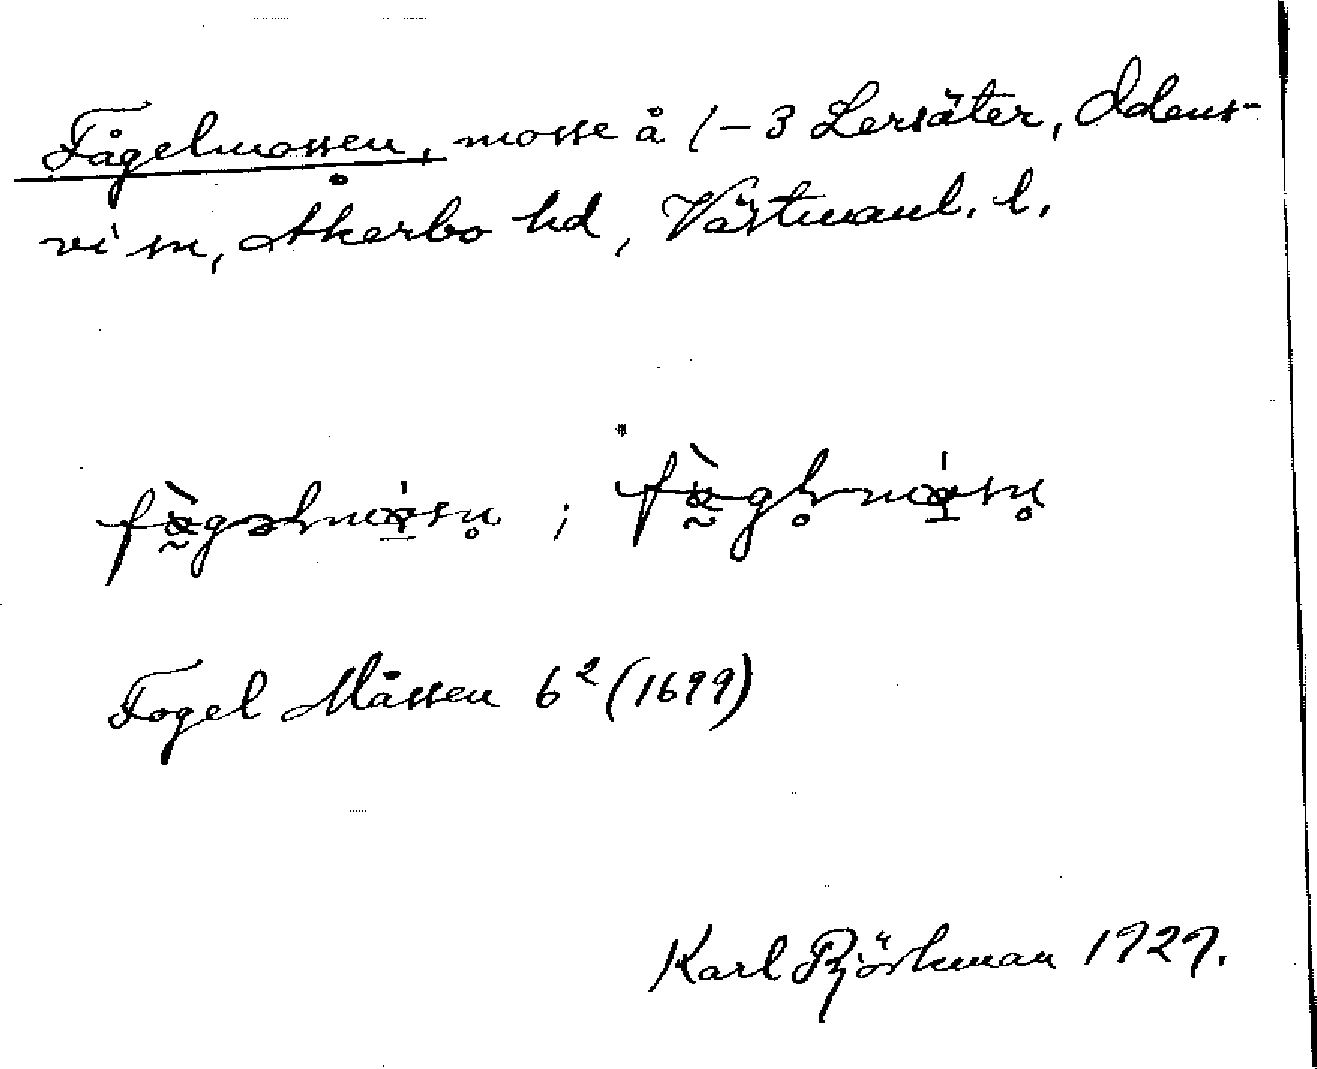 Fågelmossen, mosse å 1-3 Lersäter, Odens-
vi sn, Åkerbo hd, Västmanl. l.
Fogel Måssen 6² (1699)
Karl Björkman 1929.